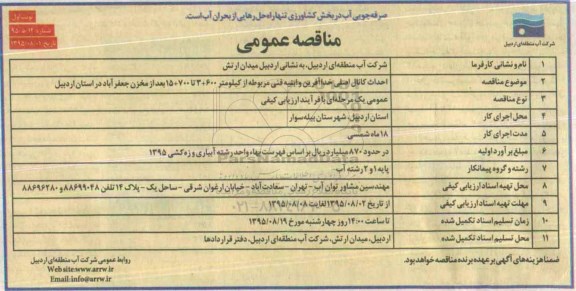 صرفه‌جویی آب در بخش کشاورزی تنها راه حل رهایی از بحران آب است.
نوبت اول
تاریخ ۱۳۹۵/۰۸/۰۱
شرکت آب منطقه‌ای اردبیل
مناقصه عمومی
۱ نام و نشانی کارفرما شرکت آب منطقه‌ای اردبیل، به نشانی اردبیل میدان ارتش
۲ موضوع مناقصه احداث کانال اصلی خداآفرین و ابنیه فنی مربوطه از کیلومتر ۳۰+۶۰۰ تا ۱۵۰+۷۰۰ بعد از مخزن جعفرآباد در استان اردبیل
۳ نوع مناقصه عمومی یک مرحله‌ای با فرآیند ارزیابی کیفی
۴ محل اجرای کار استان اردبیل، شهرستان بیله‌سوار
۵ مدت اجرای کار ۱۸ ماه شمسی
۶ مبلغ برآورد اولیه در حدود ۸۷۰ میلیارد ریال بر اساس فهرست بهاء واحد رشته آبیاری و زه‌کشی ۱۳۹۵
۷ رشته و گروه پیمانکار پایه ۱ و ۲ رشته آب
۸ محل تهیه اسناد ارزیابی کیفی مهندسین مشاور توان آب - تهران - سعادت‌آباد - خیابان ارغوان شرقی - ساحل یک - پلاک ۱۴ تلفن ۸۸۶۹۹۰۴۸ و ۸۸۶۹۶۲۸۰
۹ مهلت تهیه اسناد ارزیابی کیفی از تاریخ ۱۳۹۵/۰۸/۰۲ لغایت ۱۳۹۵/۰۸/۰۸
۱۰ زمان تسلیم اسناد تکمیل شده تا ساعت ۱۴:۰۰ روز چهارشنبه مورخ ۱۳۹۵/۰۸/۱۹
۱۱ محل تسلیم اسناد تکمیل شده اردبیل، میدان ارتش، شرکت آب منطقه‌ای اردبیل، دفتر قراردادها
ضمنا هزینه‌های آگهی بر عهده برنده مناقصه خواهد بود.
روابط عمومی شرکت آب منطقه‌ای اردبیل
Web site:www.arrw.ir
Email:info@arrw.ir